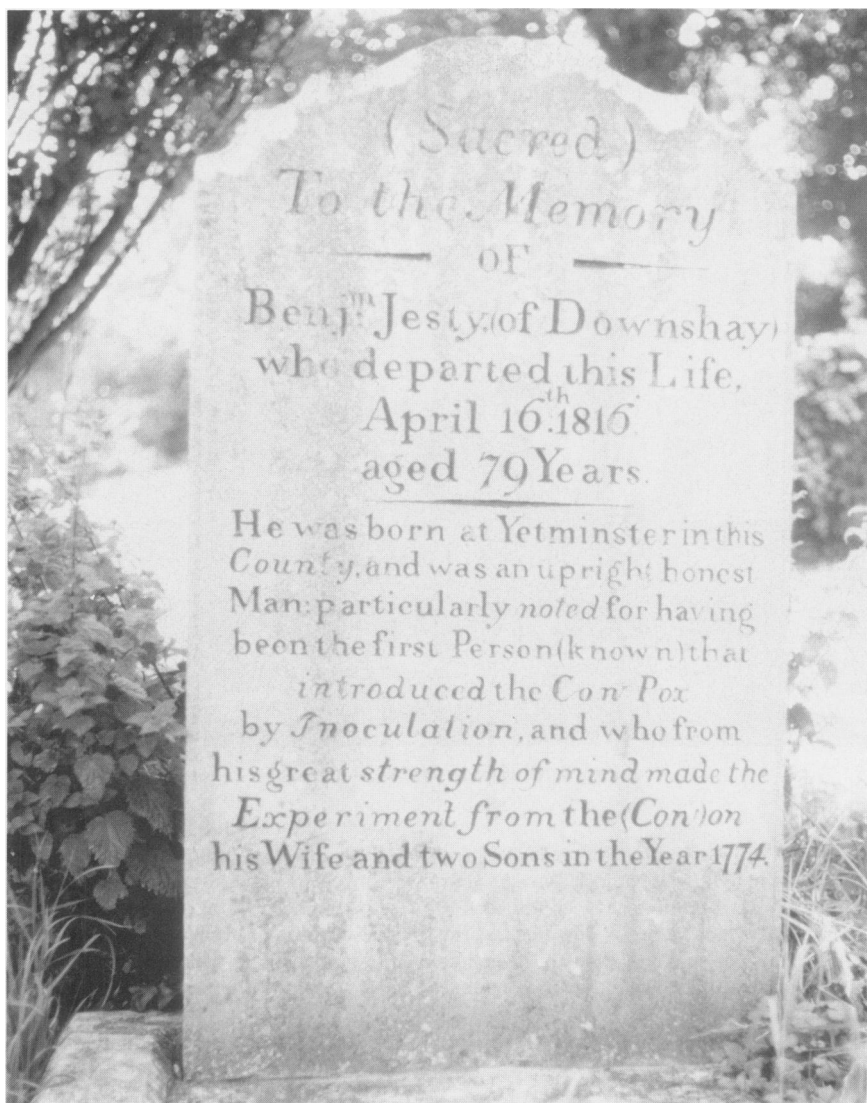 (Sacred)
To the Memory
OF
Benjm. Jesty.(of Downshay)
who departed this Life,
April 16th.1816.
aged 79 Years.
He was born at Yetminster in this
County, and was an upright honest
Man: particularly noted for having
been the first Person (known) that
introduced the Cow Pox
by Inoculation, and who from
his great strength of mind made the
Experiment from the (Cow) on
his Wife and two Sons in the Year 1774.